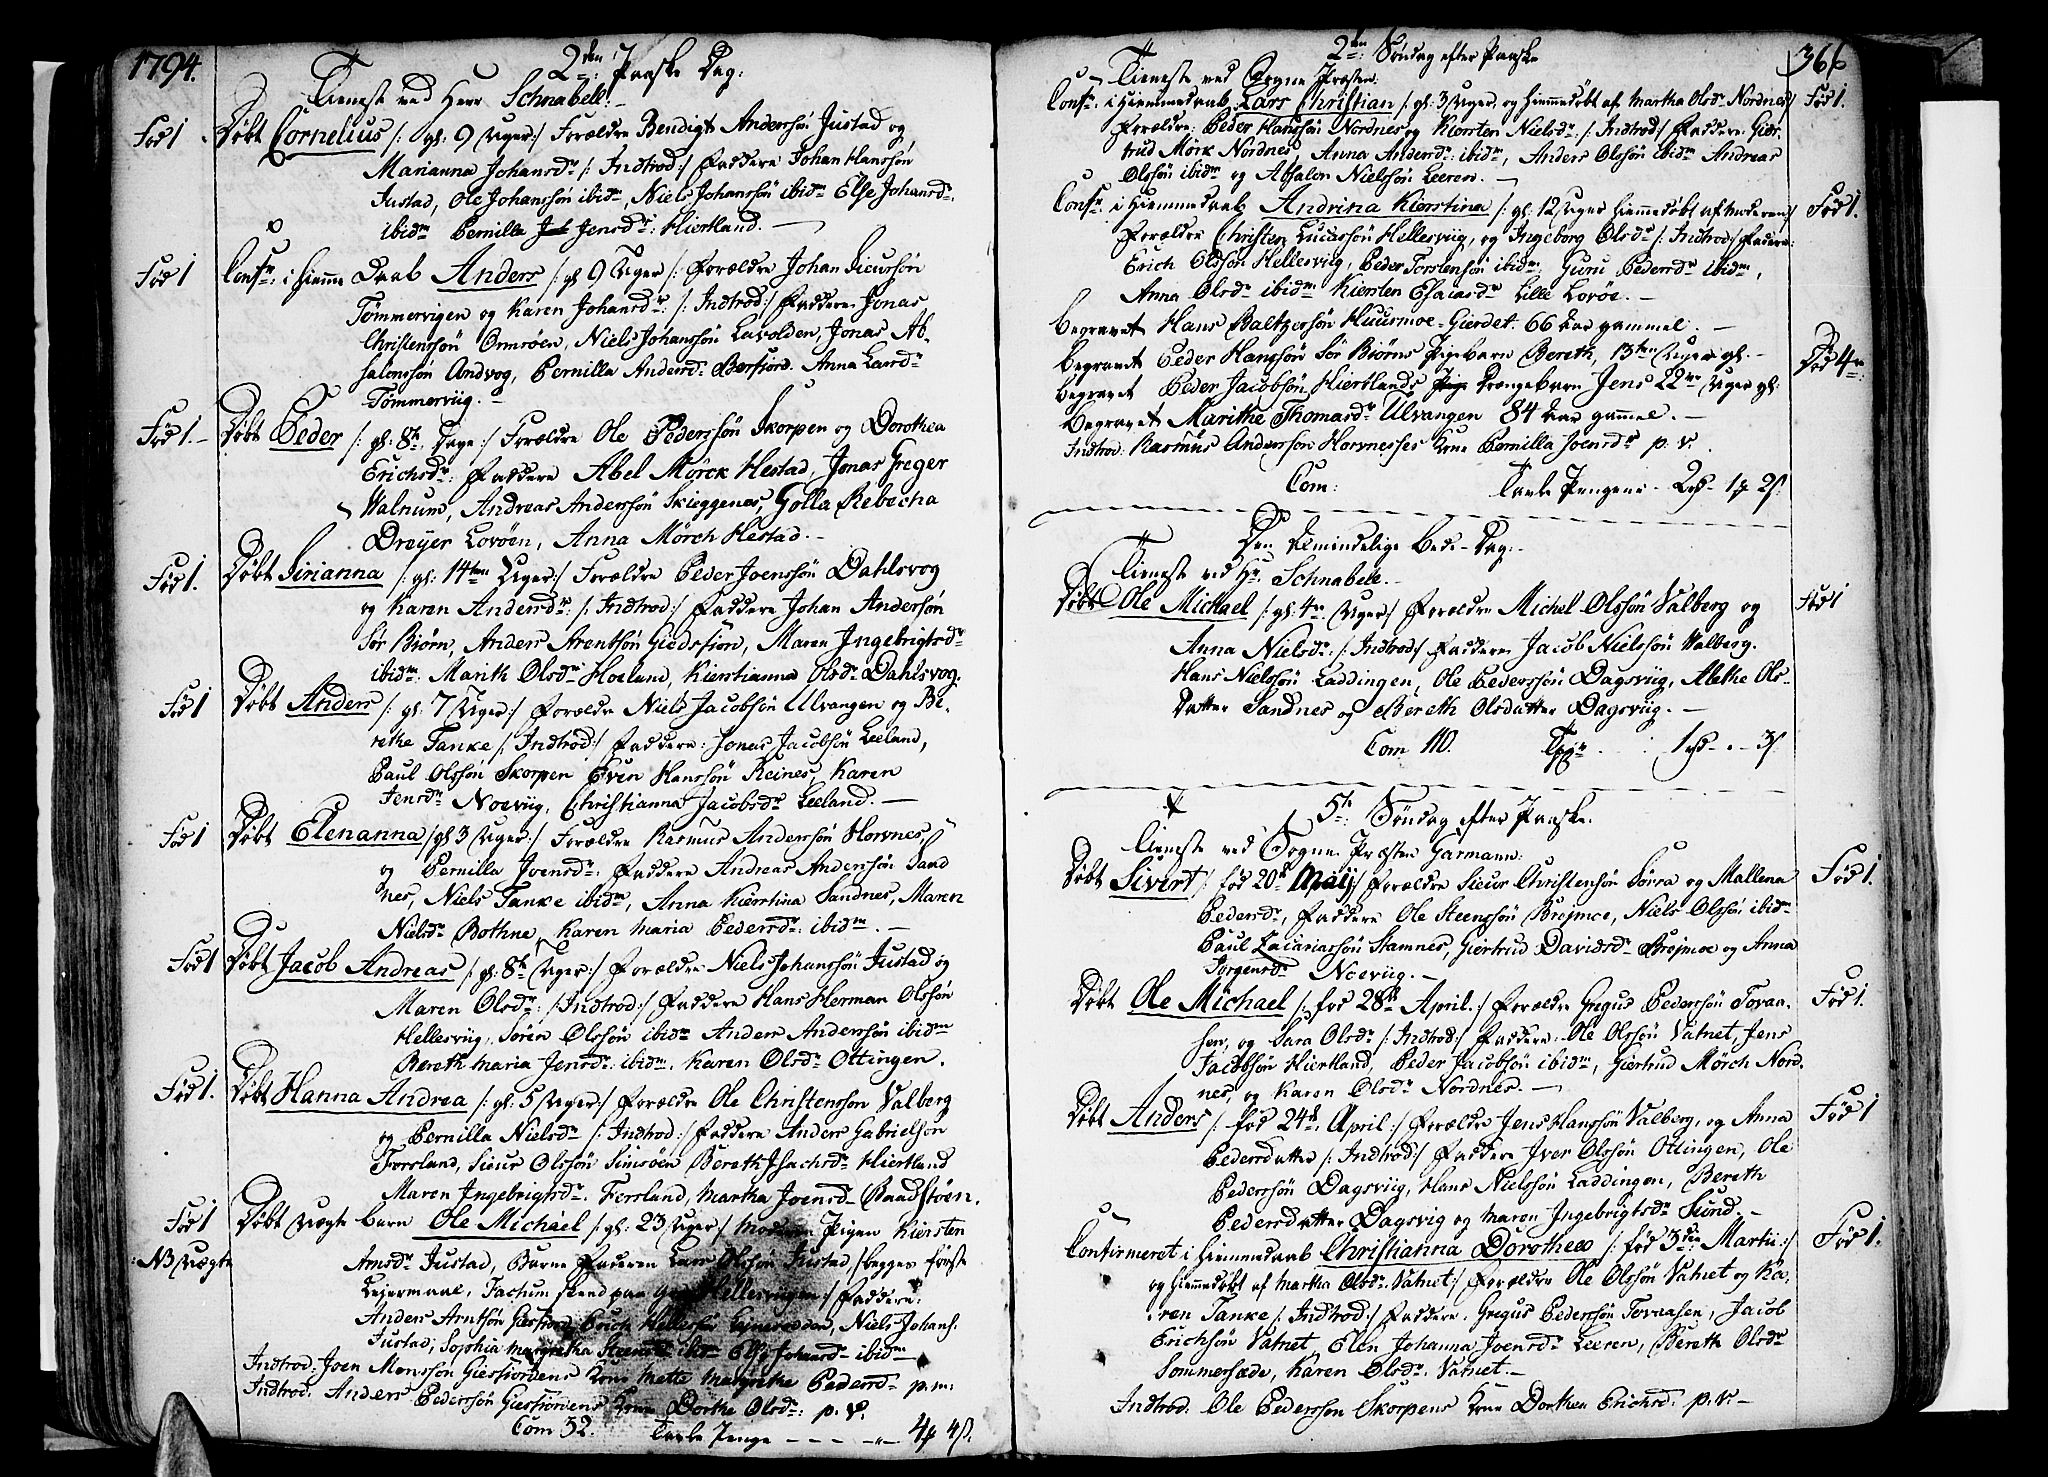 1794.
2den Paaske Dag:
Tieneste ved Herr Schnabell:
Fød 1 Døbt Cornelius /: gl: 9 Uger:/ Forældre Bendigt Andersøn Justad og
Marianna Johansdr /: Indtrod:/ Faddere Johan Hanssøn
Justad, Ole Johanssøn ibidm, Niels Johanssøn ibidm Else Johansdr
ibidm Pernilla Jensdr: Hiertland.
Fød 1 Confr: i Hiemme Daab Anders /: gl 9 Uger /: Forældre Johan Siurssøn
Tømmervigen og Karen Johansdr: /: Indtrod:/ Faddere Jonas
Christenssøn Ormsøen, Niels Johanssøn Lavolden, Jonas Ab-
salonssøn Andvog, Pernilla Andersdr Berfiord. Anna Larsdr
Tømmerviig.
Fød 1. Døbt Peder /: gl: 8te Dage:/ Forældre Ole Pederssøn Skorpen og Dorothea
Erichsdr: Faddere Abel Mörck Hestad, Jonas Greger
Walnum, Andreas Anderssøn Skieggenes, Golla Rebecha
Dreyer Lovöen, Anna Mørch Hestad.
Fød 1. Døbt Sirianna /: gl: 14ten Uger:/ Forældre Peder Joenssøn Dahlsvog
og Karen Andersdr: /: Indtrod:/ Faddere Johan Andersøn
Sør Biørn, Anders Arentsøn Giedsfion, Maren Ingebrigtsdr
ibidm: Marith Olsdr Hoeland, Kierstianna Olsdr Dahlsvog.
Fød 1 Døbt Anders /: gl: 7 Uger:/ Forældre Niels Jacobsøn Ulvangen og Be-
rethe Tanke /: Indtrod:/ Faddere: Jonas Jacobsøn Leeland,
Paul Olssøn Skorpen Even Hanssøn Reines, Karen
Jensdr Noeviig, Christianna Jacobsdr Leeland.
Fød 1 Døbt Elenanna /: gl 3 Uger:/ Forældre Rasmus Anderssøn Horvnes,
og Pernilla Joensdr: Faddere Andreas Anderssøn Sand
nes, Niels Tanke ibidm, Anna Kierstina Sandnes, Maren
Nielsdr Bothne, Karen Maria Pedersdr: ibidm.
Fød 1 Døbt Jacob Andreas /: gl: 8te Uger:/ Forældre Niels Johanssøn Justad og
Maren Olsdr: /: Indtrod:/ Faddere Hans Herman Olssøn
Hellesviig, Søren Olssøn ibidm Anders Anderssøn ibidm
Bereth Maria Jensdr: ibidm. Karen Olsdr Ottingen.
Fød 1. Døbt Hanna Andrea /: gl: 5 Uger:/ Forældre Ole Christenssøn Valberg
og Pernilla Nielsdr /: Indtrod:/ Faddere Anders Gabrielsøn
Forsland, Siuur Olssøn Simsøen Bereth Isachsdr Hiertland
Maren Ingebrigtsdr. Forsland, Martha Joensdr Baadstöen.
Fød 1 Døbt Uægte barn Ole Michael /: gl: 23 Uger:/ Moderen Pigen Kiersten
:NB Uægte Arnsdr Justad, Barne Faderen Lars Olssøn Justad /: begges første
Leiermaal, Factum skeed paa Hellesviigen:/ Faddere:
Anders Arntsøn Erich Niels Johans:
Justad, Sophia Margretha ibidm Else Johansdr ibidm
Indtrod: Joen Monssøn Giersfiordens Kone Mette Margrethe Pedersdr p.m:
Indtrod: Anders Pederssøn Giersfiordens Kone Dorthe Olsdr: p. v.
Com 32. Tavle Penge - - - - 4 4 ß.
366
2den: Søndag efter Paaske
Tieneste ved Sogne Præsten:
Confr: i Hiemmedaab Lars Christian /: gl: 3 Uger, og Hiemmedøbt af Martha Olsdr Nordnes:/ Fød 1.
Forældre: Peder Hanssøn Nordnes og Kiersten Nielsdr: /: Indtrod:/ Faddere: Gier-
trud Mörk Nordnes, Anna Andersdr: ibidm, Anders Olssøn ibidm Andreas
Olssøn ibidm og Absalon Nielssøn Leeren.
Confr: i Hiemmedaab Andrina Kierstina /: gl: 12 Uger Hiemmedøbt af Moderen:/ Fød 1.
Forældre Christen Lucassøn Hellesviig, og Ingeborg Olsdr /: Indtrod:/ Faddere:
Erich Olssøn Hellesviig, Peder Torstensøn ibidm, Guru Pedersdr ibidm,
Anna Olsdr ibidm Kiersten Esaiasdr Lille Lovøe.
Begravet Hans Baltzersøn Huusmoe-Gierdet. 66 Aar gammel.
Begravet Peder Hanssøns Sør Biørns Pigebarn Bereth, 13ten Uger gl. Død 4re:
Begravet Peder Jacobsøn Hiertlands Drengebarn Jens 22de Uger gl:
Begravet Marithe Thomasdr Ulvangen 84 Aar gammel.
Indtrod: Rasmus Anderssøn Horvneses Kone Pernilla Joensdr p. v.
Com: Tavle Pengene - 2 - 1 2 ß.
Den Almindelige Bede-Dag:
Tieneste ved Hr: Schnabell.
Døbt Ole Michael /: gl: 4re Uger:/ Forældre Michel Olssøn Valberg og Fød 1
Anna Nielsdr: /: Indtrod:/ Faddere Jacob Nielssøn Valberg.
Hans Nielssøn Laddingen, Ole Pederssøn Dagsviig, Alethe Ols-
Datter Sandnes og Bereth Olsdatter Dagsviig.
Com 110. 1 - - 3 ß
5te: Søndag efter Paaske.
Tieneste ved Sogne Præsten Garmann:
Døbt Sivert /: fød 20de Maij:/ Forældre Siuur Christensøn Sørra og Mallena Fød 1.
Pedersdr, Faddere Ole Steenssøn Brejmoe, Niels Olssøn ibidm
Paul Zacariassøn Stamnes, Giertrud Davidsdr Brejmoe og Anna
Jørgensdr Noeviig.
Døbt Ole Michael /: fød 28de April:/ Forældre Gregus Pederssøn Tovaa- Fød 1.
sen, og Sara Olsdr /: Indtrod:/ Faddere: Ole Olssøn Vatnet, Jens
Jacobsøn Hiertland, Peder Jacobsøn ibidm, Giertrud Mörch Nord.
nes, og Karen Olsdr Nordnes.
Døbt Anders /: fød 24de April:/ Forældre Jens Hanssøn Valberg, og Anna Fød 1
Pedersdatter /: Indtrod:/ Faddere Iver Olssøn Ottingen, Ole
Pederssøn Dagsviig, Hans Nielssøn Laddingen, Bereth
Pedersdatter Dagsviig og Maren Ingebrigtsdr Sund.
Confirmeret i Hiemmedaab Christianna Dorothea /: fød 3die: Martii:/ Fød 1.
og Hiemmedøbt af Martha Olsdr Vatnet:/ Forældre Ole Olssøn Vatnet og Ka-
ren Tanke /: Indtrod:/ Faddere. Gregus Pederssøn Tovaasen, Jacob
Erichsøn Vatnet, Elen Johanna Joensdr Leeren, Bereth Olsdr
Sommersæde, Karen Olsdr: Vatnet.
Indtrod: Ole Pederssøn Skorpens Kone Dorthea Erichsd: p. v.